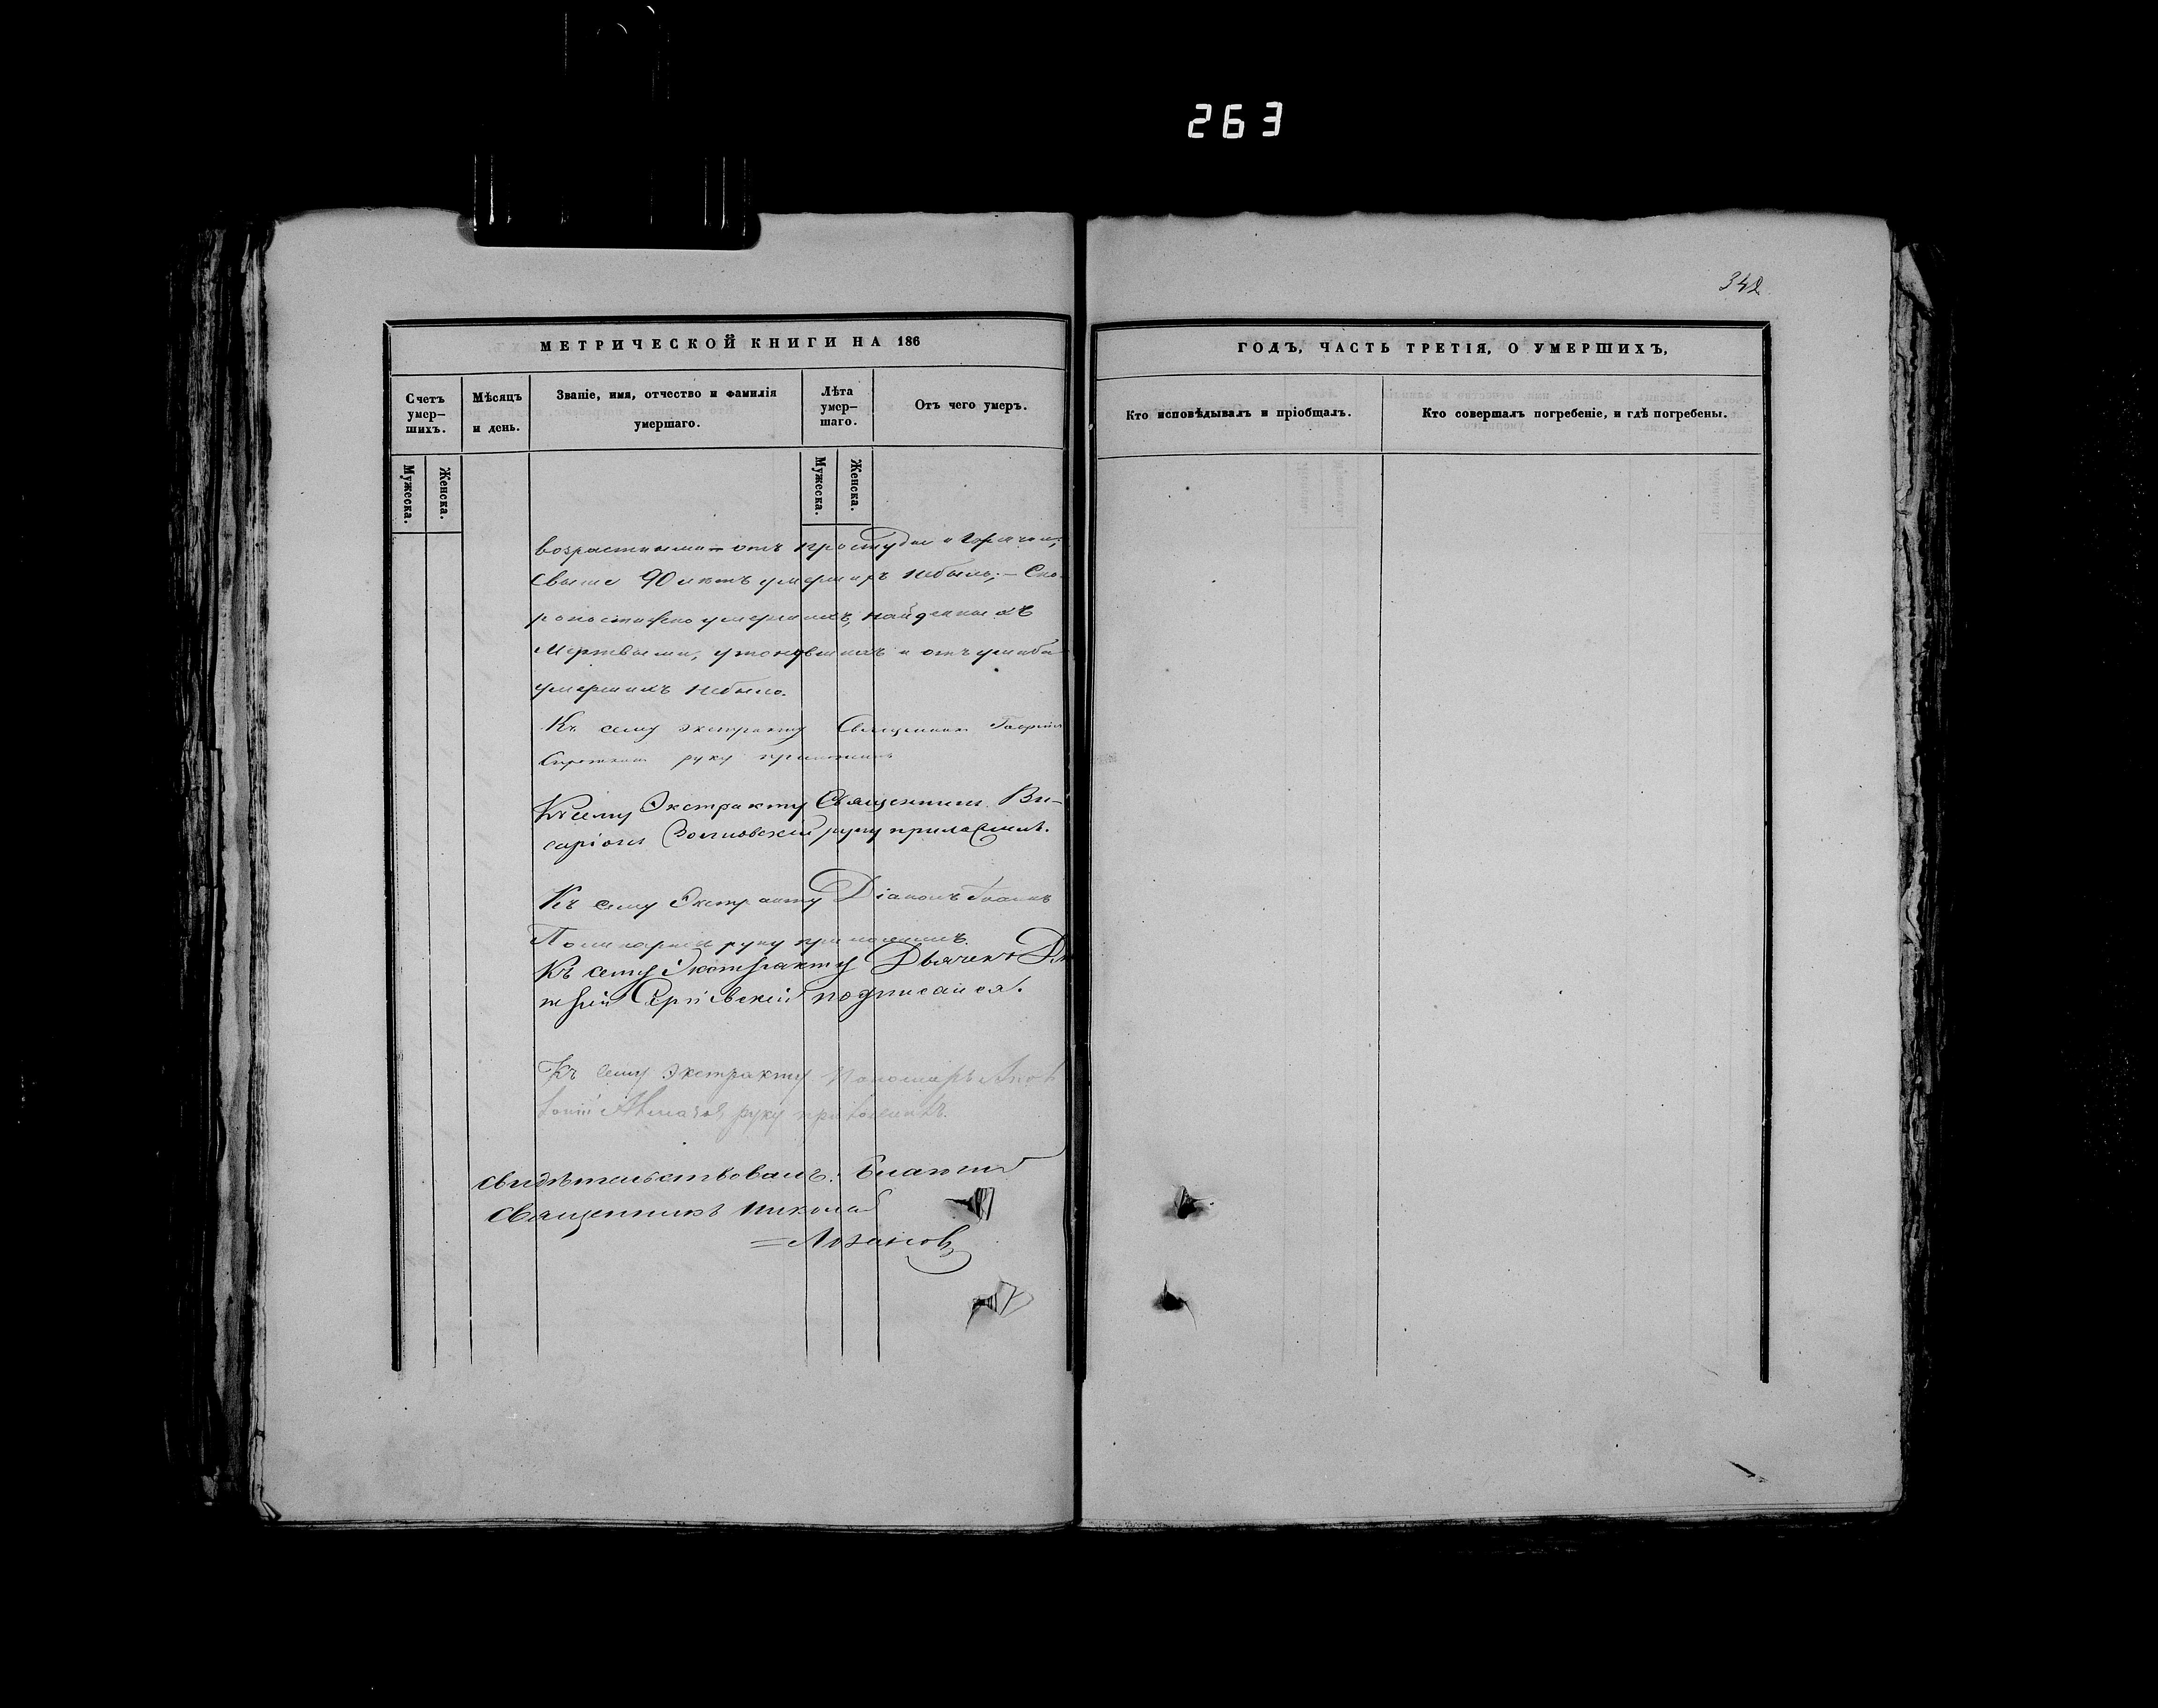 263
342
МЕТРИЧЕСКОЙ КНИГИ НА 186
Счетъ умер- шихъ.
Мѣсяцъ и день.
Званіе, имя, отчество и фамилія умершаго.
Лѣта умер- шаго.
Отъ чего умеръ.
Мужеска.
Женска.
Мужеска.
Женска.
возрастными – отъ простуды и горячки;
свыше 90 лѣтъ умершихъ небыло; – Ско-
ропостижно умершихъ, найденныхъ
мертвыми, утонувшихъ и отъ ушиба
умершихъ небыло.
Къ сему экстракту Священникъ
руку приложилъ
Къ сему Экстракту Священникъ Ви-
саріонъ руку приложилъ.
Къ сему Экстракту Діаконъ
руку приложилъ.
Къ сему Экстракту Дьячекъ Дм
трій Сергіевскій подписался.
Къ сему Экстракту Пономарь
руку приложилъ.
Свидѣтельствовалъ: Благочин
Священникъ Николай
ГОДЪ, ЧАСТЬ ТРЕТІЯ, О УМЕРШИХЪ,
Кто исповѣдывалъ и пріобщалъ.
Кто совершалъ погребеніе, и гдѣ погребены.